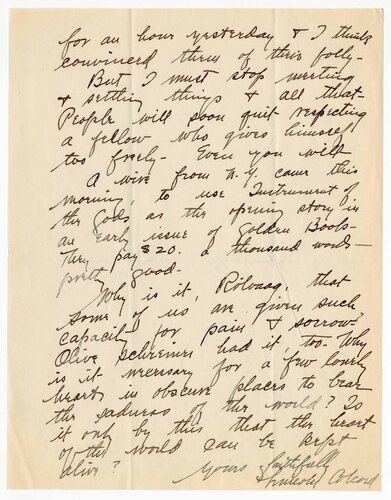 for an hour yesterday & I think
convinced them of their folly-
But I must stop meeting
& settling things & all that-
People will soon quit respecting
a fellow who gives himself
too freely- Even you will
A wire from N.Y. came this
morning, to use Instrument of
the Gods as the opening story in
an early issue of Golden Book-
They pay $20. a thousand words-
pretty good.
Why is it, Rölvaag, that
some of us are given such
capacity for pain & sorrow?
Olive Schreiner had it, too. Why
is it necessary for a few lonely
hearts in obscure places to bear
the sadness of the world? Is
it only by this that the heart
of the world can be kept
alive?
Yours faithfully
Lincoln Colcord